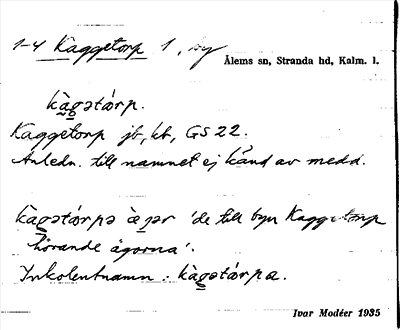 1-4 Kaggetorp 1, by
Ålems sn, Stranda hd, Kalm. l.
kàgətárp.
Kaggetorp jb, kb, GS 22.
Anledn. till namnet ej känd av medd.
kàgətárpə ʻde till byn Kaggetorp
hörande ägornaʼ.
Inkolentnamn : kàgətárpa.
Ivar Modéer 1935